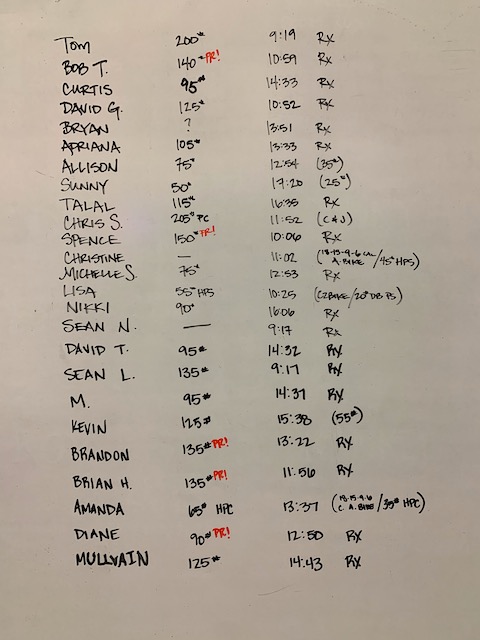 Tom 200# 9:19 RX
BOB T. 140# PR! 10:59 RX
CURTIS 95# 14:33 RX
DAVID G. 125# 10:52 RX
BRYAN ? 13:51 RX
ADRIANA 105# 13:33 RX
ALLISON 75# 12:54 (35#)
SUNNY 50# 17:20 (25#)
TALAL 115# 16:35 RX
CHRIS S. 205# PC 11:52 (C & J)
SPENCE 150# PR! 10:06 RX
CHRISTINE — 11:02 (18-15-9-6 CAL A. BIKE / 45# HPS)
MICHELLE S. 75# 12:53 RX
LISA 55# HPS 10:25 (C2BIKE / 20# DB PS)
NIKKI 90# 16:06 RX
SEAN N. — 9:17 RX
DAVID T. 95# 14:32 RX
SEAN L. 135# 9:17 RX
M. 95# 14:37 RX
KEVIN 125# 15:38 (55#)
BRANDON 135# PR! 13:22 RX
BRIAN H. 135# PR! 11:56 RX
AMANDA 65# HPC 13:37 (18-15-9-6 C. A. BIKE / 35# HPC)
DIANE 90# PR! 12:50 RX
MULLVAIN 125# 14:43 RX